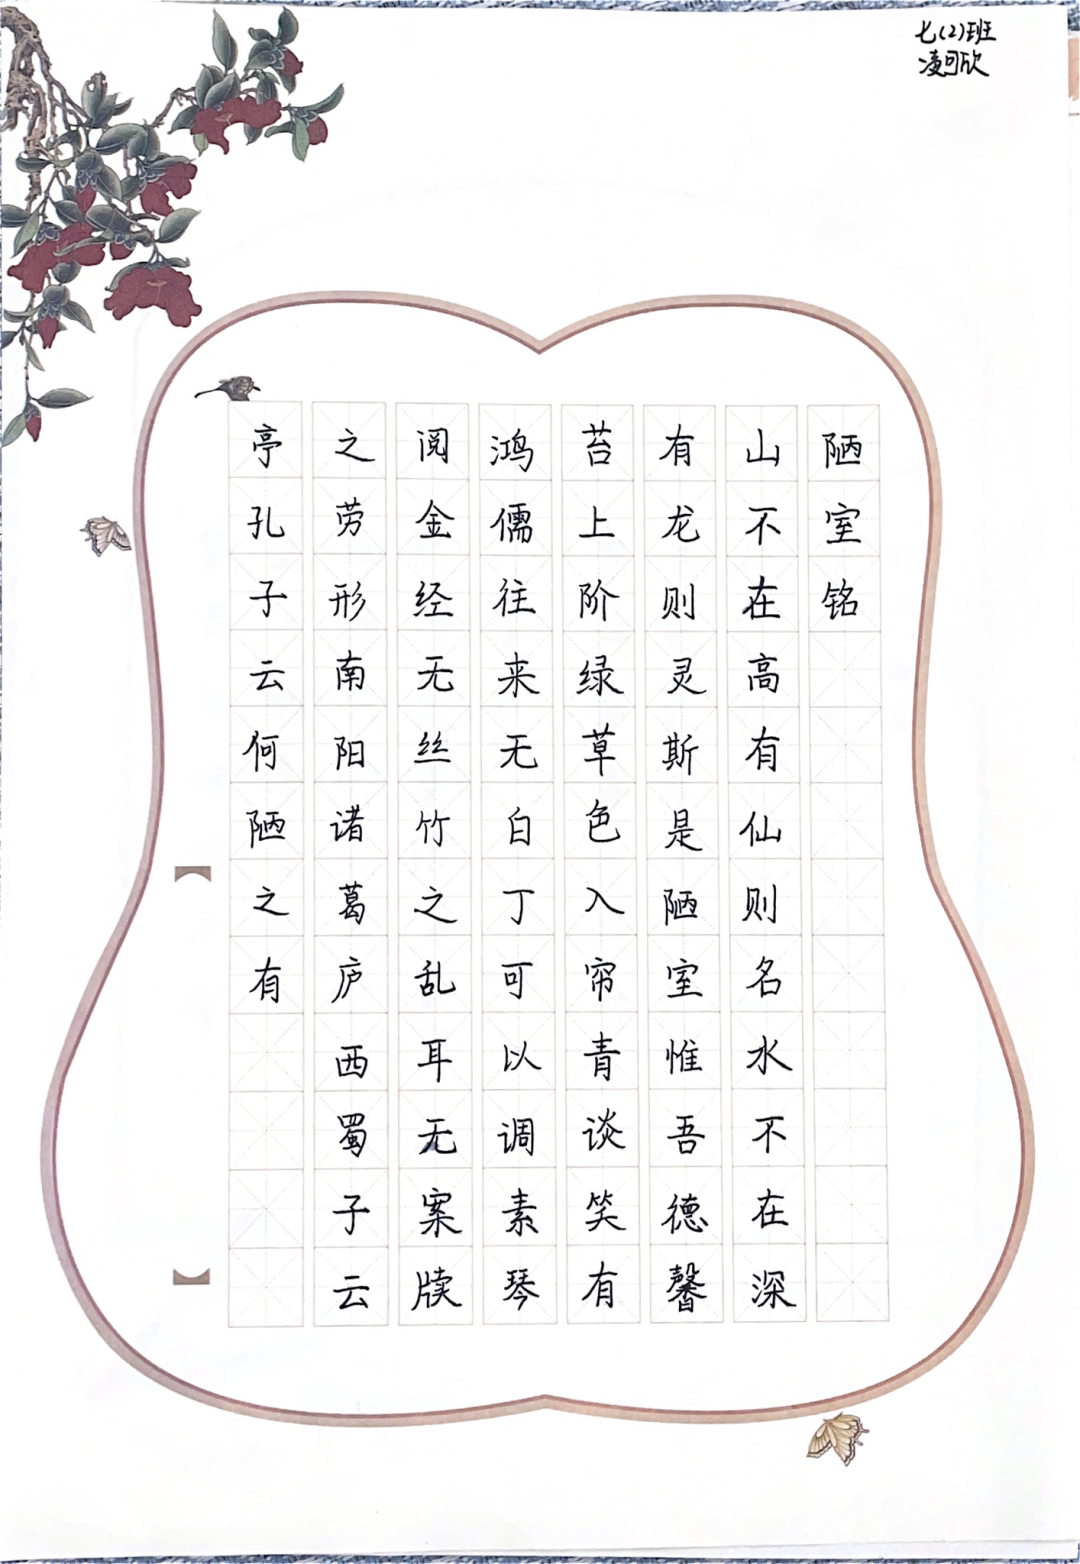 七(2)班
凌可欣
陋室铭
山不在高有仙则名水不在深
有龙则灵斯是陋室惟吾德馨
苔上阶绿草色入帘青谈笑有
鸿儒往来无白丁可以调素琴
阅金经无丝竹之乱耳无案牍
之劳形南阳诸葛庐西蜀子云
亭孔子云何陋之有